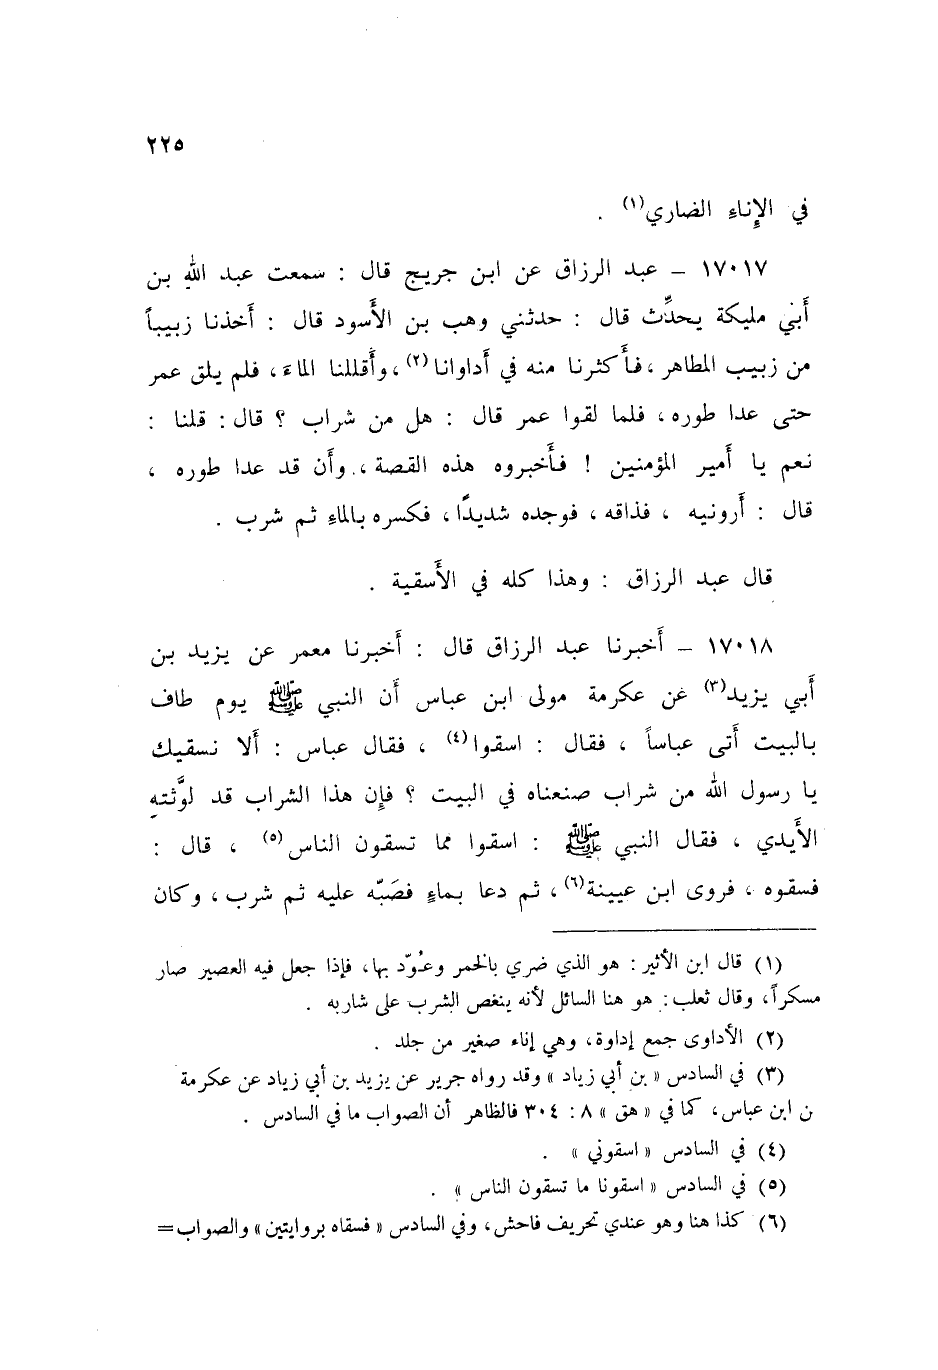 ٢٢٥
في الإناء الضاري(١) .
١٧٠١٧ – عبد الرزاق عن ابن جريج قال : سمعت عبد الله بن
أبي مليكة يحدّث قال : حدثني وهب بن الأسود قال : أخذنا زبيباً
من زبيب المطاهر ، فأكثرنا منه في أداوانا(٢) ، وأقللنا الماء ، فلم يلق عمر
حتى عدا طوره ، فلما لقوا عمر قال : هل من شراب ؟ قال : قلنا :
نعم يا أمير المؤمنين ! فأخبروه هذه القصة ، وأن قد عدا طوره ،
قال : أرونيه ، فذاقه ، فوجده شديدًا ، فكسره بالماء ثم شرب .
قال عبد الرزاق : وهذا كله في الأسقية .
١٧٠١٨ – أخبرنا عبد الرزاق قال : أخبرنا معمر عن يزيد بن
أبي يزيد(٣) عن عكرمة مولى ابن عباس أن النبي ﷺ يوم طاف
بالبيت أتى عباساً ، فقال : اسقوا(٤) ، فقال عباس : ألا نسقيك
يا رسول الله من شراب صنعناه في البيت ؟ فإن هذا الشراب قد لوَّثته
الأيدي ، فقال النبي ﷺ : اسقوا مما تسقون الناس(٥) ، قال :
فسقوه ، فروى ابن عيينة(٦) ، ثم دعا بماءٍ فصَبّه عليه ثم شرب ، وكان
(١) قال ابن الأثير : هو الذي ضري بالخمر وعُوّد بها ، فإذا جعل فيه العصير صار
مسكراً ، وقال ثعلب : هو هنا السائل لأنه ينغص الشرب على شاربه .
(٢) الأداوى جمع إداوة ، وهي إناء صغير من جلد .
(٣) في السادس « بن أبي زياد » وقد رواه جرير عن يزيد بن أبي زياد عن عكرمة
ن ابن عباس ، كما في « هق » ٨ : ٣٠٤ فالظاهر أن الصواب ما في السادس .
(٤) في السادس « اسقوني » .
(٥) في السادس « اسقونا ما تسقون الناس » .
(٦) كذا هنا وهو عندي تحريف فاحش ، وفي السادس « فسقاه بروايتين » والصواب =